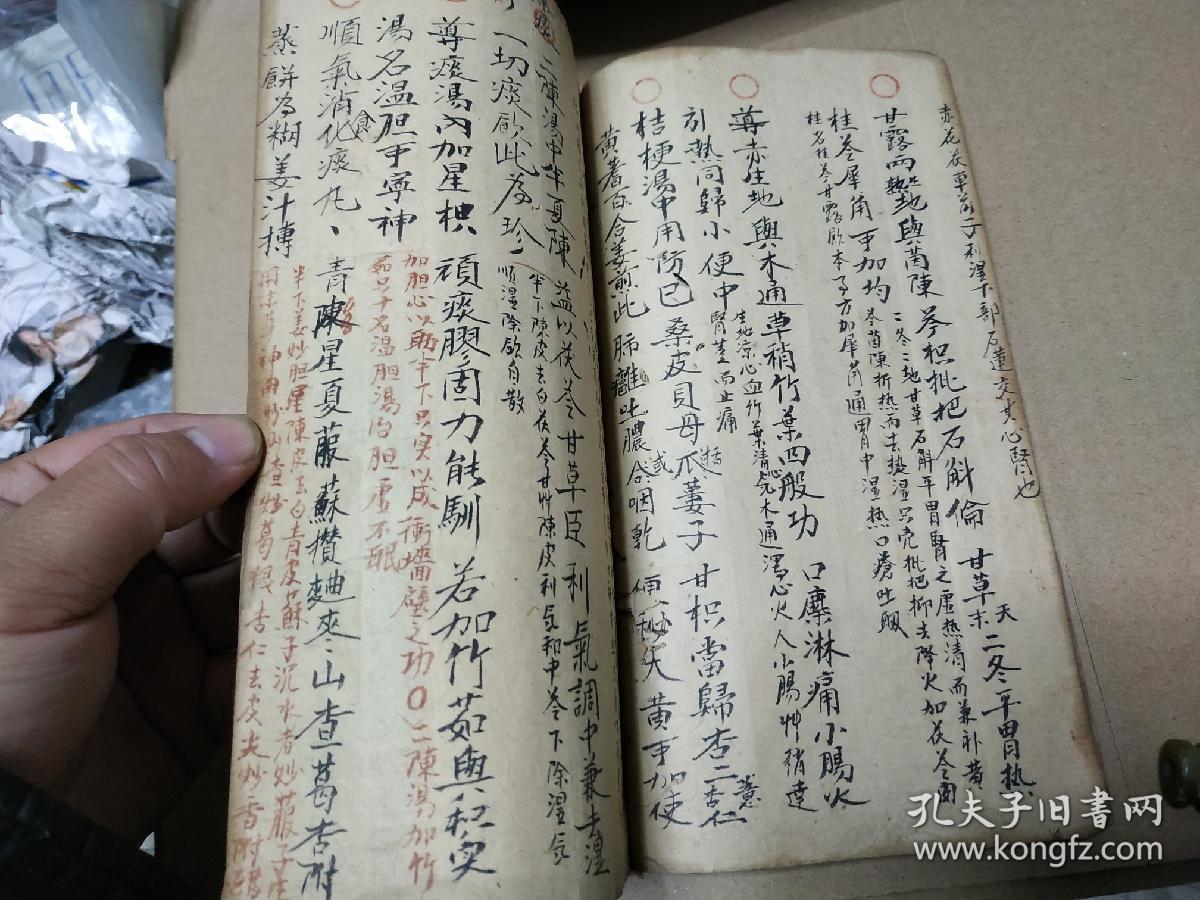 赤花在車前子利湿下部石蓮交其心腎也
甘露兩熟地與茵陳芩枳枇把石斛倫甘草末天二冬平胃热
二冬二地甘草石斛平胃腎之虚热清而兼补黄
芩茵陳折熱而去热湿只売枇把抑去降火加茯苓肉
桂苓犀角可加均
桂名桂苓甘露飲本事方加犀角通胃中湿热口瘡吐衄
導赤生地與木通草稍竹葉四般功口糜淋痛小腸火
引热同歸小便中
生地凉心血竹葉清心氣木通瀉心火入小腸艸稍達
腎莖而止痛
桔梗湯中用防己桑皮貝母瓜蔞子甘枳當歸杏二仁
黄耆百合姜煎此肺癰吐膿或咽乾便秘大黄可加使
二陳湯中半夏陳益以茯苓甘草臣利氣調中兼去湿
一切痰飲此為珍
半下陳皮去白茯苓甘艸陳皮利氣和中苓下除湿氣
順湿除飲自散
導痰湯內加星枳頑痰膠固力能馴若加竹茹與枳实
湯名温胆可寧神
加胆心以助半下只实以成衝墻壁之功〇二陳湯加竹
茹只实名温胆湯治胆虚不眠
順氣消食化痰丸、青陳星夏菔蘇攢麯麥山查葛杏附
蒸餅為糊姜汁摶
半下姜炒胆星陳皮去白青皮蘇子沉水者炒菔子生
用麦芽神曲炒山查炒葛根杏仁去皮尖炒香附
孔夫子旧书网
www.kongfz.com